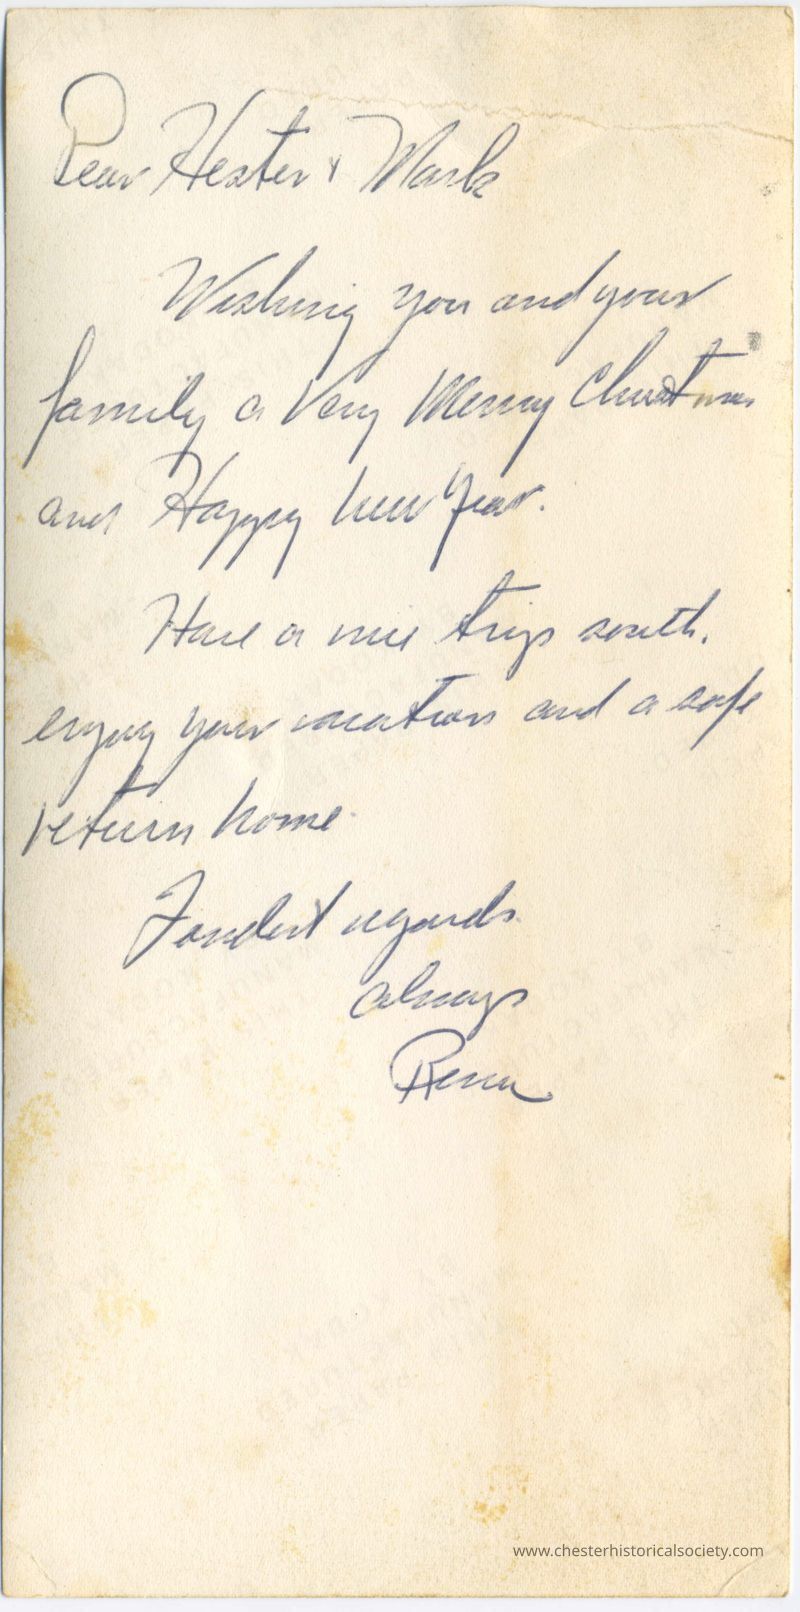 Dear Hester & Mark
Wishing you and your
family a Very Merry Christmas
and Happy New Year.
Have a nice trip south,
enjoy your vacation and a safe
return home.
Fondest regards
always
Rena
www.chesterhistoricalsociety.com